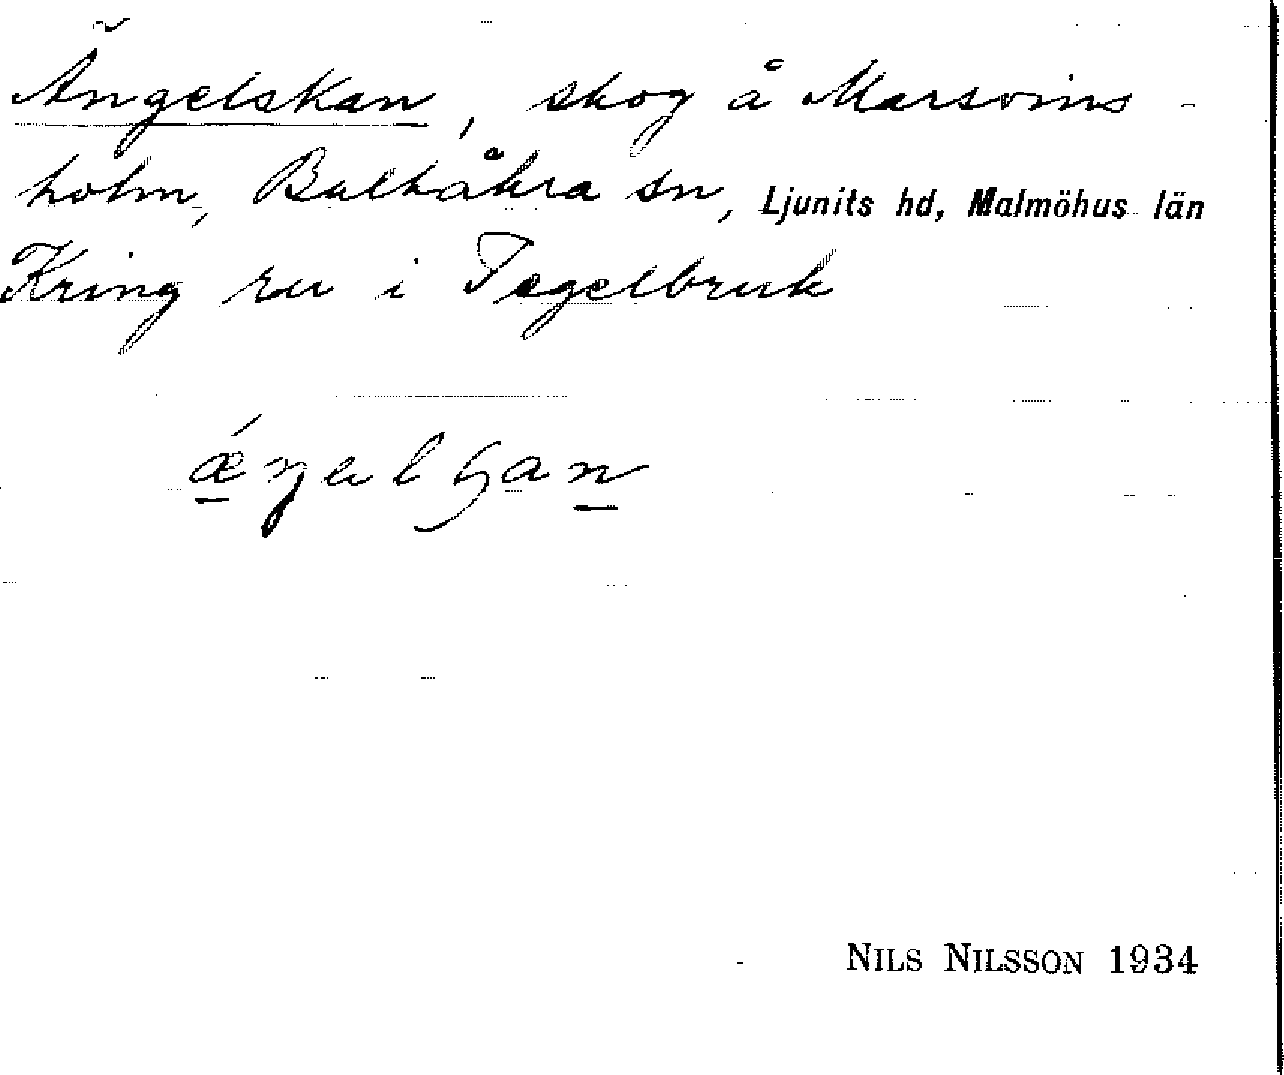 Ängelskan, skog å Marsvins-
holm, Balkåkra sn, Ljunits hd, Malmöhus län
Kring rui i Tegelbruk
NILS NILSSON 1934